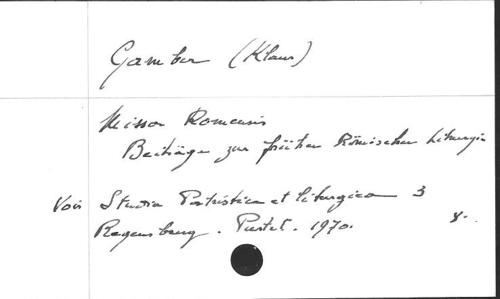 Gamber (Klaus)
Missa Romensis
Beiträge zur früher Römischen Liturgie
Voir Studia Patristica et liturgica 3
Regensburg. Pustet. 1970.
8.